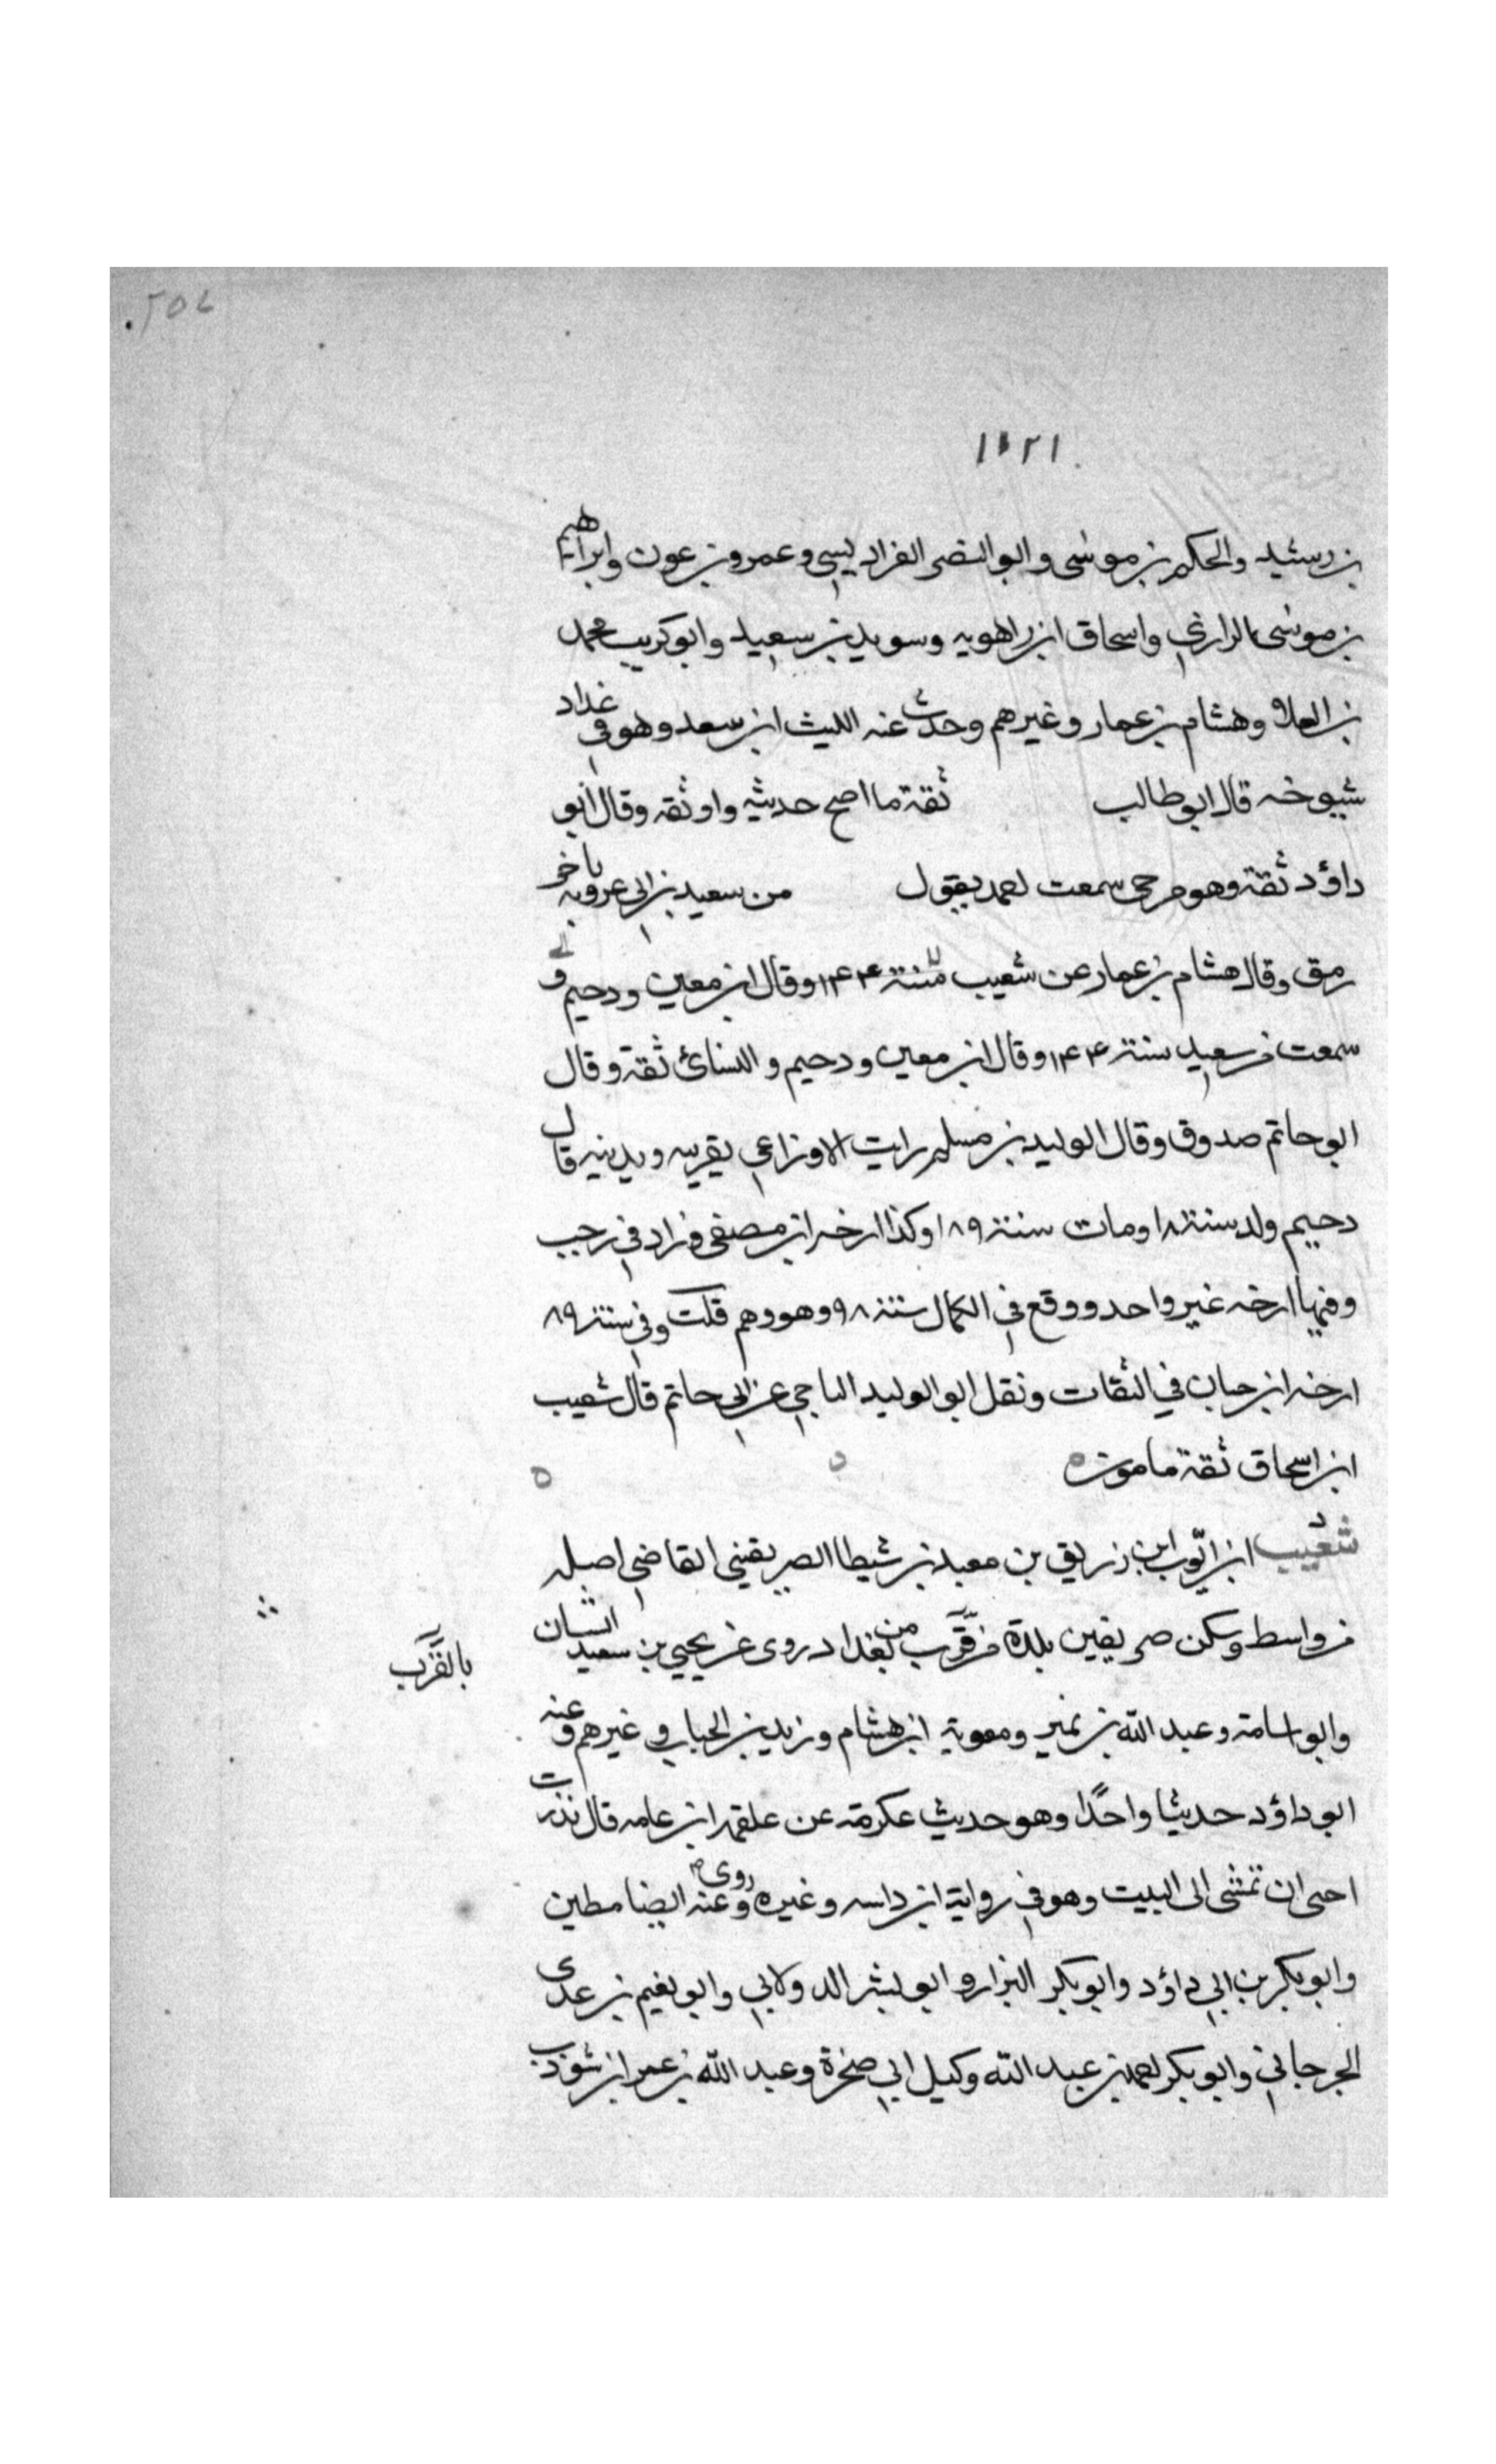 ١١٢١
بن رشيد والحكم بن موسى وابو النضر الفراديسى وعمرو بن عون وابراهيم
بن موسى الرازي واسحاق ابن راهويه وسويد بن سعيد وابو كريب محمد
بن العلاء وهشام بن عمار وغيرهم وحدث عنه الليث ابن سعد وهو في عداد
شيوخه قال ابو طالب ثقة ما اصح حديثه واوثقه وقال ابو
داؤد ثقة وهو مرجى سمعت احمد يقول من سعيد بن ابي عروبة باخر
رمق وقال هشام بن عمار عن شعيب سنة ١٤٤ وقال ابن معين ودحيم و
سمعت من سعيد سنة ١٤٤ وقال ابن معين ودحيم والنسائ ثقة وقال
ابو حاتم صدوق وقال الوليد بن مسلم رايت الاوزاعي يقربه ويدنيه قال
دحيم ولد سنة ١٨ ومات سنة ١٨٩ وكذا ارخه ابن مصفى وزاد في رجب
وفيها ارخه غير واحد ووقع في الكمال سنة ٩٨ وهو وهم قلت وفي سنة ٨٩
ارخه ابن حبان في الثقات ونقل ابو الوليد الباجي عن ابي حاتم قال شعيب
ابن اسحاق ثقة مامون
د
شعيب ابن ايوب ابن زريق بن معبد بن شيطا الصريفيني القاضي اصله
من واسط وسكن صريفين بلدة من قرب من بغداد روى عن يحيي بن سعيد
بالقرب
وابو اسامة وعبد الله بن نمير ومعوية ابن هشام وزيد بن الحباب وغيرهم وعنه
ابو داؤد حديثا واحدًا وهو حديث عكرمة عن علقمة ابن عامر قال نذرت
احى ان تمشى الى البيت وهو في رواية ابن داسه وغيره وروى عنه ايضا مطين
وابو بكر بن ابي داؤد وابو بكر البزار و ابو بشر الدولابي وابو نعيم بن عدى
الجرجاني وابو بكر احمد بن عبد الله وكيل ابي صخرة وعبد الله بن عمر ابن شوذب